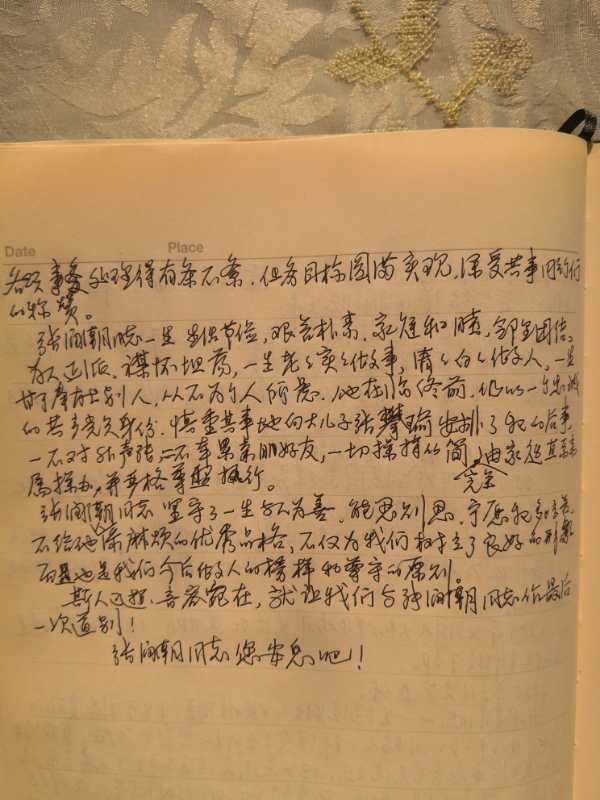 Date Place
各项事务处理得有条不紊，任务目标圆满实现，深受共事同行们
的称赞。
张润朝同志一生生活节俭，艰苦朴素，家庭和睦，邻里团结，
为人正派，襟怀坦荡，一生老老实实做事，清清白白做人，一生
甘于奉献别人，从不为个人所虑。他在临终前，仍以一个忠诚
的共产党员身份，慎重其事地向大儿子张攀瑜安排了死后后事
一不对外声张，二不牵累亲朋好友，一切操持从简，由家庭直系亲
属操办，并严格尊照执行。
完全
张润朝同志坚守了一生与人为善，能忍则忍，宁愿自己
不给他添麻烦的优秀品格，不仅为我们树立了良好的形象
而且也是我们今后做人的榜样和尊守的原则。
斯人已逝，音容宛在，就让我们与张润朝同志作最后
一次道别！
张润朝同志您安息吧！